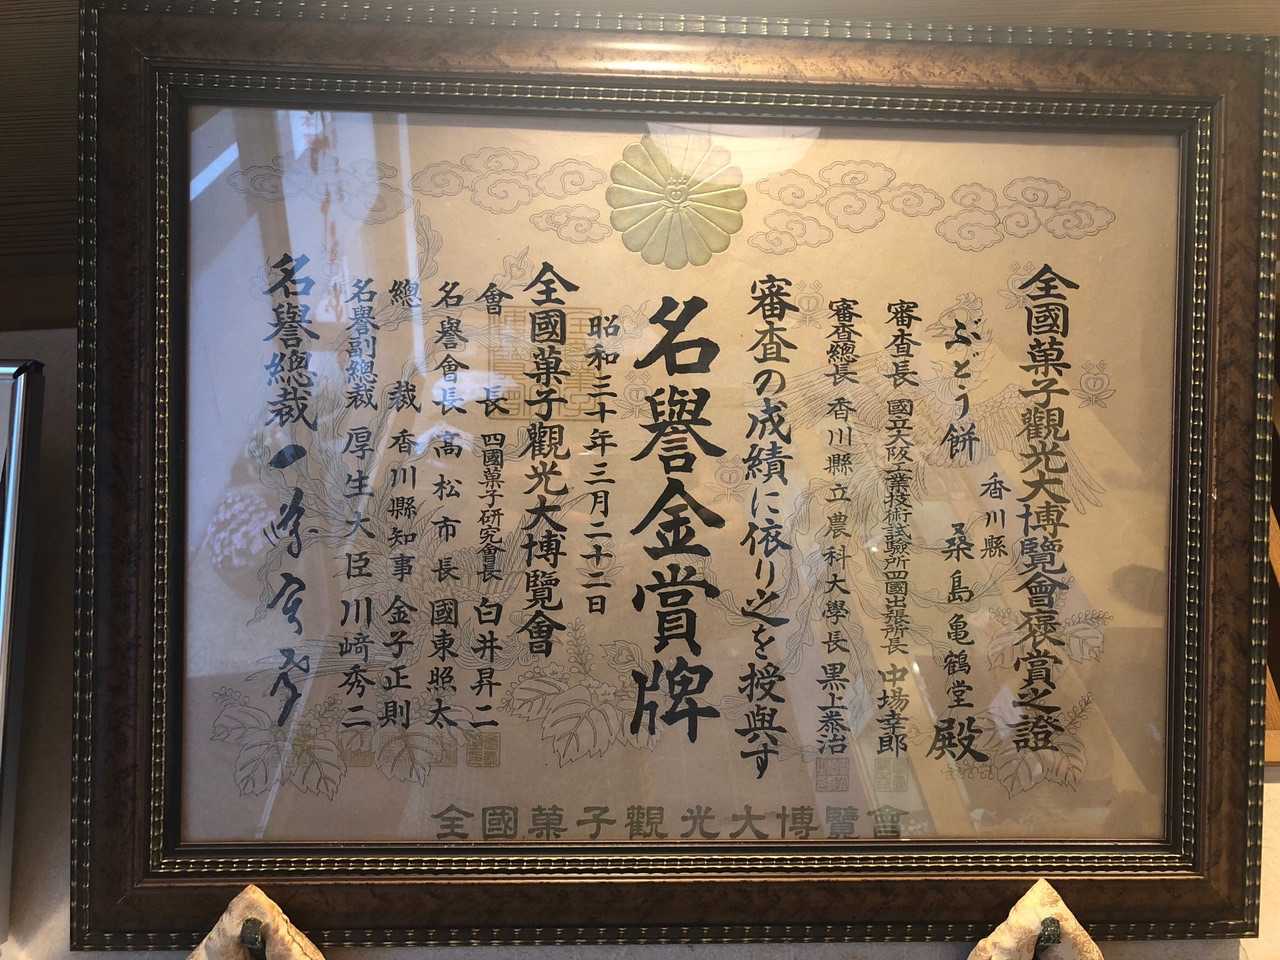 全國菓子觀光大博覽會褒賞之證
香川縣
ぶどう餅 桑島亀鶴堂殿
審査長 國立大阪工業技術試驗所四國出張所長 中場幸郎
審査總長 香川縣立農科大學長 黒上泰治
審査の成績に依り之を授與す
名譽金賞牌
昭和三十年三月二十二日
全國菓子觀光大博覽會
會長 四國菓子研究會長 白井昇二
名譽會長 高松市長 國東照太
總裁 香川縣知事 金子正則
名譽副總裁 厚生大臣 川﨑秀二
名譽總裁 一
全國菓子觀光大博覽會